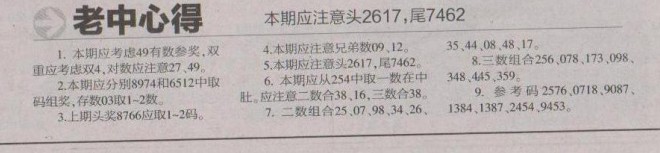 老中心得
本期应注意头2617,尾7462
1. 本期应考虑49有数参奖,双
重应考虑双4,对数应注意27、49。
2.本期应分别8974和6512中取
码组奖,存数03取1~2数。
3.上期头奖8766应取1~2码。
4.本期应注意兄弟数09、12。
5.本期应注意头2617,尾7462。
6. 本期应从254中取一数在中
肚。应注意二数合38、16,三数合38。
7. 二数组合25、07、98、34、26、
35、44、08、48、17。
8.三数组合256、078、173、098、
348、445、359。
9. 参考码2576、0718、9087、
1384、1387、2454、9453。